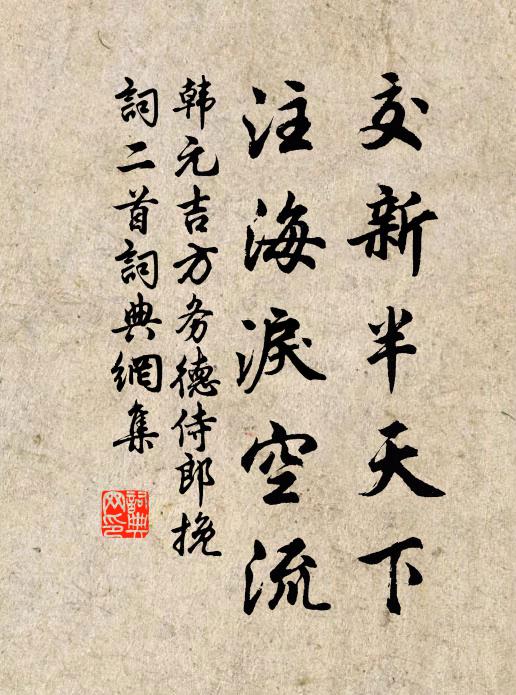 交新半天下
注海淚空流
韩元吉方务德侍郎挽
詞二首詞典網集
詞典網印